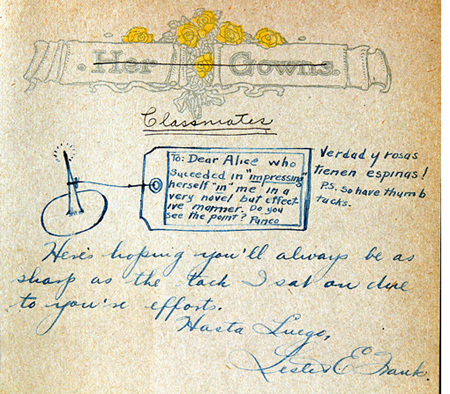 Her Gowns.
Classmates
To: Dear Alice who
succeeded in "impressing"
herself "in" me in a
very novel but effect
ive manner. Do you
see the point? Punco
Verdad y rosas
tienen espinas!
P.S. So have thumb
tacks.
Here's hoping you'll always be as
sharp as the tack I sat on due
to you're efforts.
Hasta Luego,
Lester E. Frank